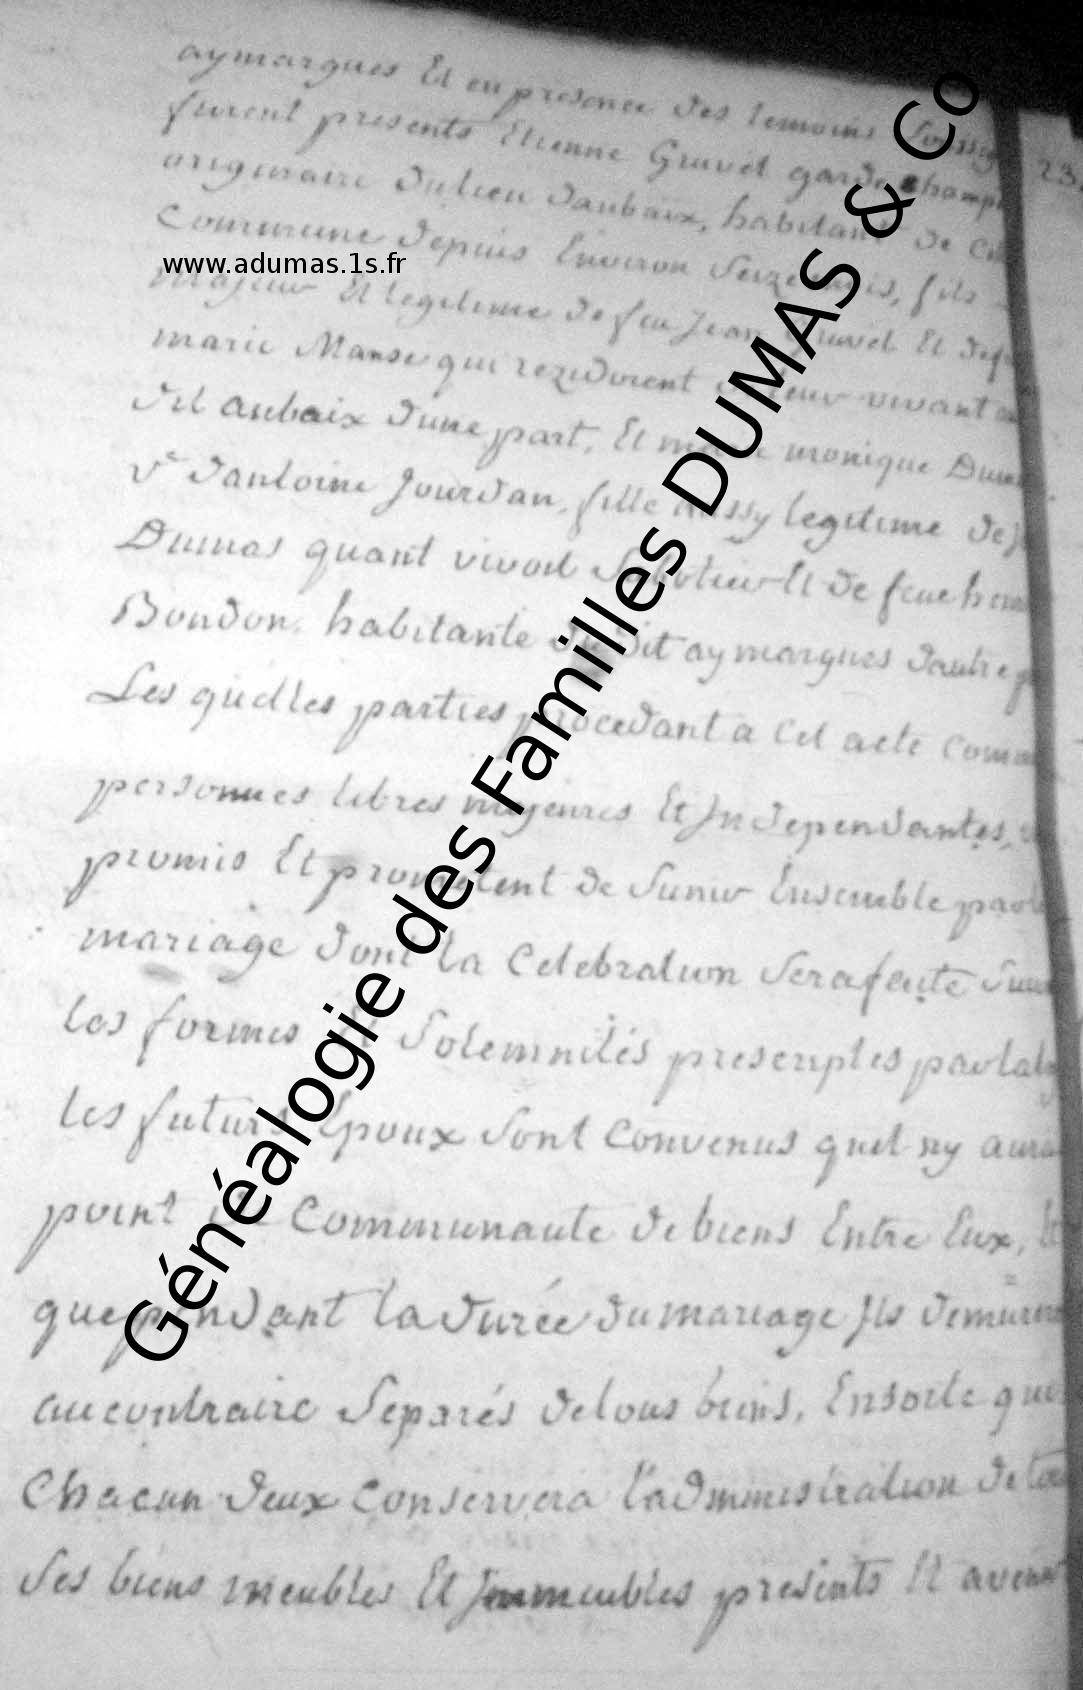 aymargues Et en presence des temoins Soussig
furent presents Etienne Gruvel garde champ
23
originaire du lieu daubaix, habitant de
Commune depuis Environ Seize mois, fils
www.adumas.1s.fr
majeur Et legitime de feu Jean Gruvel Et def
marie Manse qui rezidoient leur vivant
dit aubaix dune part, Et marie monique Dum
ve dantoine Jourdan, fille aussy legitime de
Dumas quant vivoit Et de feue
Bondon, habitante du dit aymargues dautre p
Les quelles parties procedant a cet acte comm
personnes libres majeures Et Independantes,
promis Et promettent de Sunir Ensemble par
mariage dont la Celebration Sera faite
les formes Et Solemnités prescriptes par la
les futurs Epoux Sont Convenus quil ny aura
point de Communaute de biens Entre Eux,
que pendant la durée du mariage Ils demurero
au contraire Separés de tous biens, Ensorte que
Chacun deux conservera l'administration de
Ses biens meubles Et Immeubles presents Et avenir
Généalogie des Familles DUMAS & Co